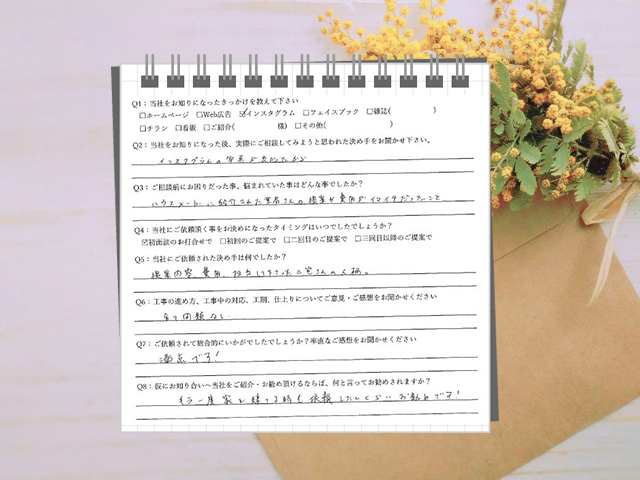 Q1：当社をお知りになったきっかけを教えて下さい
□ホームページ □Web広告 ☑インスタグラム □フェイスブック □雑誌( )
□チラシ □看板 □ご紹介( 様) □その他( )
Q2：当社をお知りになった後、実際にご相談してみようと思われた決め手をお聞かせ下さい。
インスタグラムの写真が良かったから
Q3：ご相談前にお困りだった事、悩まれていた事はどんな事でしたか？
ハウスメーカーに紹介された業者さんの提案が費用がイマイチだったこと
Q4：当社にご依頼頂く事をお決めになったタイミングはいつでしたでしょうか？
☑初面談のお打合せで □初回のご提案で □二回目のご提案で □三回目以降のご提案で
Q5：当社にご依頼された決め手は何でしたか？
提案内容、費用、担当して下さった三宅さんの人柄。
Q6：工事の進め方、工事中の対応、工期、仕上りについてご意見・ご感想をお聞かせください
全て問題なし
Q7：ご依頼されて総合的にいかがでしたでしょうか？率直なご感想をお聞かせください
満点です！
Q8：仮にお知り合いへ当社をご紹介・お勧め頂けるならば、何と言ってお勧めされますか？
もう一度家を建てる時も依頼したいくらいお勧めです！